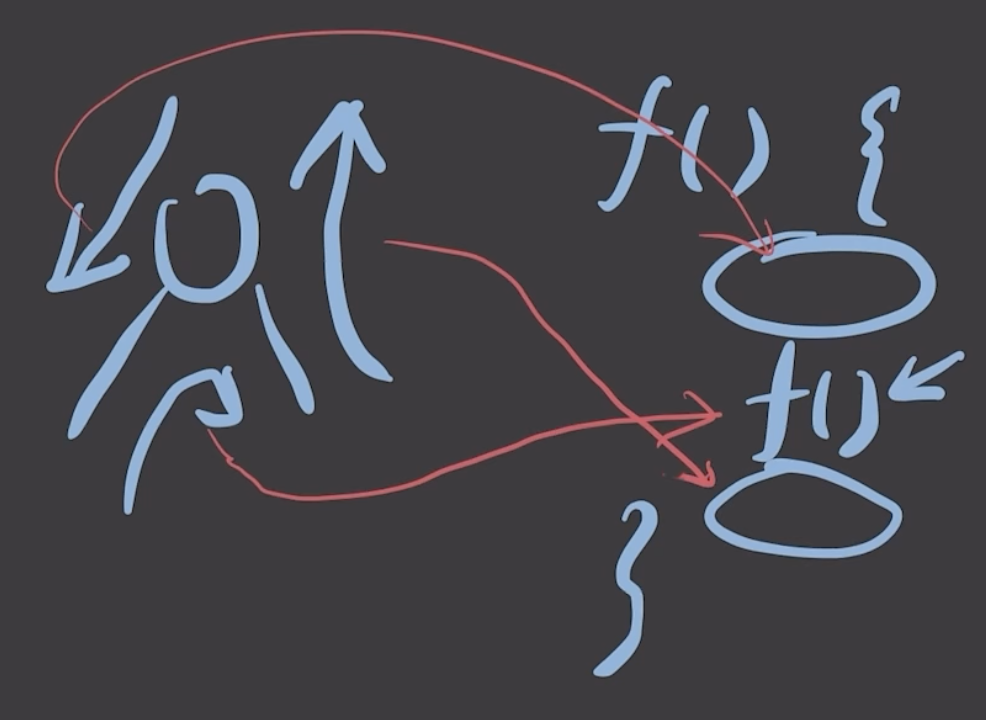 f() {
f()
}